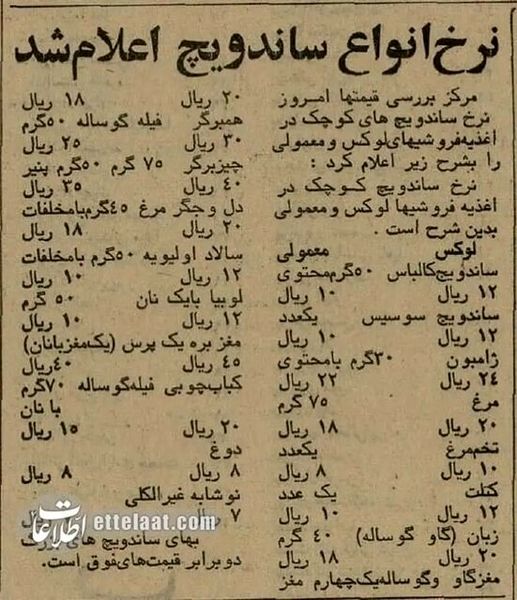 نرخ انواع ساندویچ اعلام شد
مرکز بررسی قیمتها امروز
نرخ ساندویچ های کوچک در
اغذیه فروشیهای لوکس و معمولی
را بشرح زیر اعلام کرد :
نرخ ساندویچ کوچک در
اغذیه فروشیها لوکس و معمولی
بدین شرح است .
لوکس معمولی
ساندویچ کالباس ۵۰ گرم محتوی
۱۲ ریال ۱۰ ریال
ساندویچ سوسیس یکعدد
۱۲ ریال ۱۰ ریال
ژامبون ۳۰ گرم بامحتوی
۲۴ ریال ۲۲ ریال
مرغ ۷۵ گرم
۲۰ ریال ۱۸ ریال
تخم مرغ یکعدد
۱۰ ریال ۸ ریال
کتلت یک عدد
۱۲ ریال ۱۰ ریال
زبان (گاو گوساله) ۴۰ گرم
۲۰ ریال ۱۸ ریال
مغزگاو وگوساله یک چهارم مغز
۲۰ ریال ۱۸ ریال
همبرگر فیله گوساله ۵۰ گرم
۳۰ ریال ۲۵ ریال
چیزبرگر ۷۵ گرم ۵۰ گرم پنیر
۴۰ ریال ۳۵ ریال
دل و جگر مرغ ۴۵ گرم بامخلفات
۲۰ ریال ۱۸ ریال
سالاد اولیویه ۵۰ گرم بامخلفات
۱۲ ریال ۱۰ ریال
لوبیا بایک نان ۵۰ گرم
۱۲ ریال ۱۰ ریال
مغز بره یک پرس (یک مغزبانان)
۴۵ ریال ۴۰ ریال
کباب چوبی فیله گوساله ۷۰ گرم
با نان
۲۰ ریال ۱۵ ریال
دوغ
۸ ریال ۸ ریال
نوشابه غیرالکلی
۷ ریال
بهای ساندویچ های
دو برابر قیمت های فوق است.
اطلاعات ettelaat.com